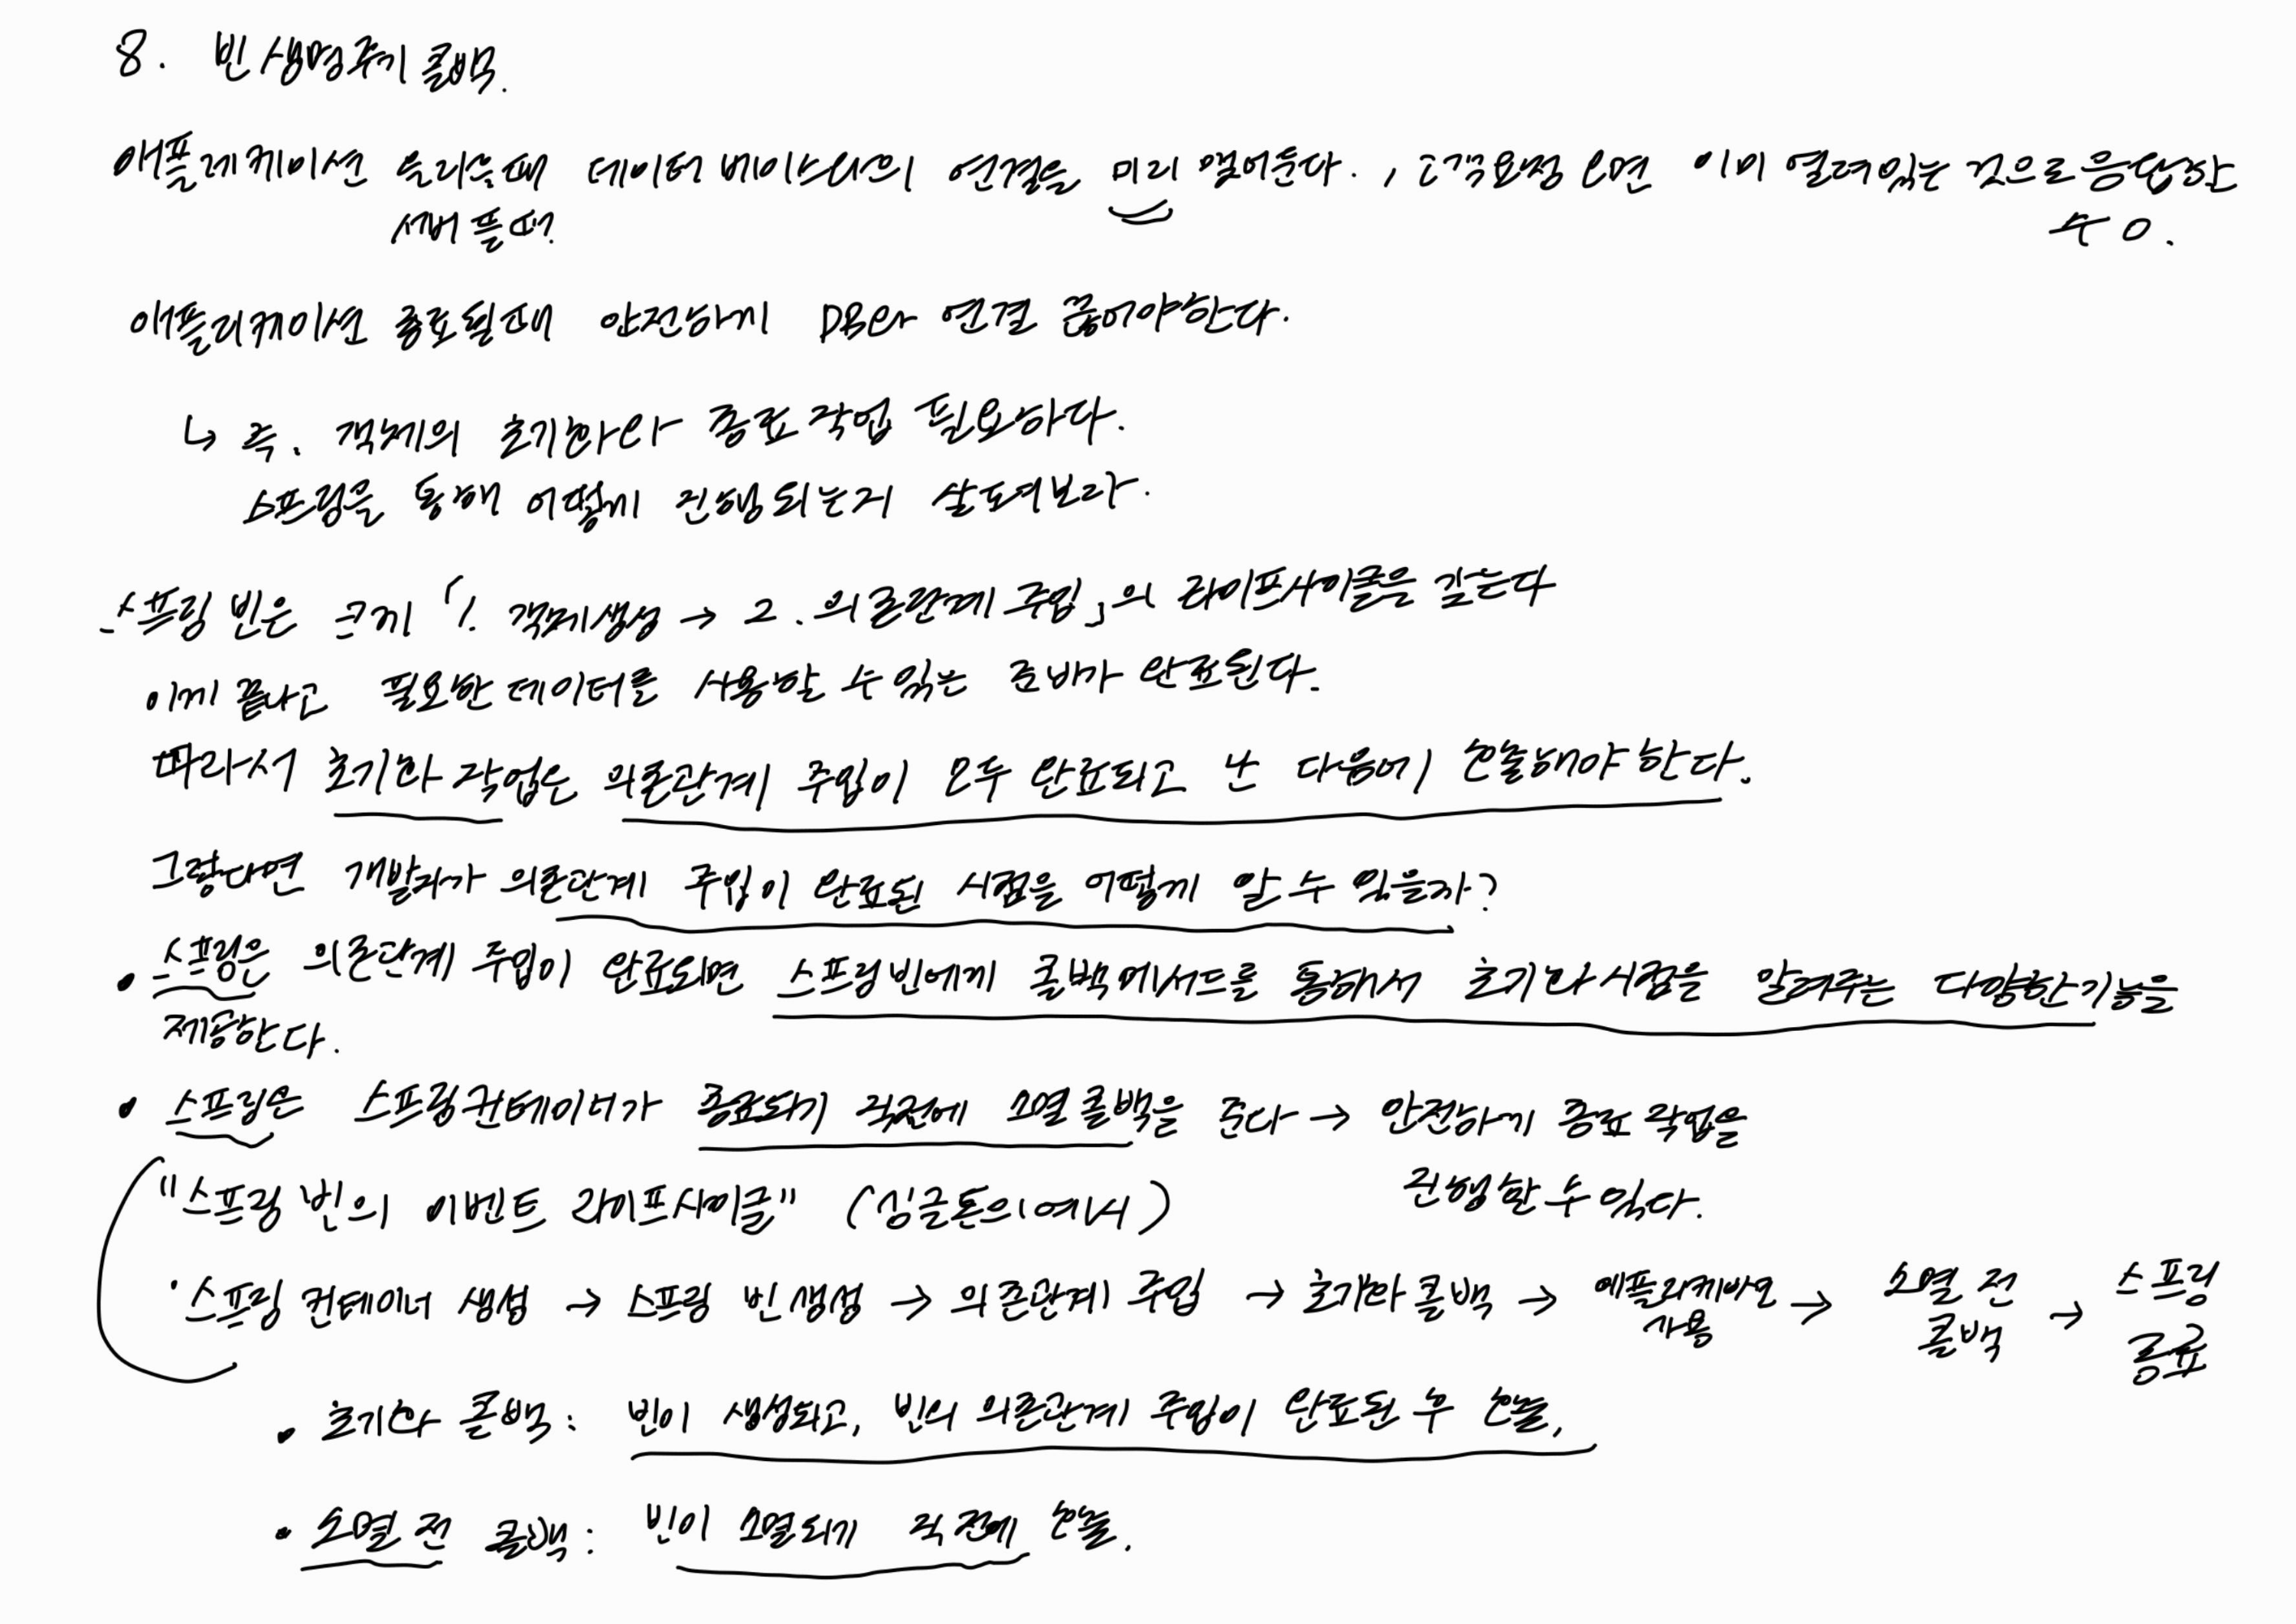 8. 빈 생명주기 콜백.
애플리케이션 올라올때 데이터 베이스와의 연결을 미리 맺어둔다. , 고객요청 오면 이미 열려있는 것으로 응답할
서버 뜰때 수 O.
애플리케이션 종료될때 안전하게 DB와 연결 끊어야한다.
↳ 즉. 객체의 초기화와 종료 작업 필요하다.
스프링을 통해 어떻게 진행되는지 살펴보라.
스프링 빈은 크게 「1. 객체생성 → 2. 의존관계 주입」의 라이프사이클을 갖는다
이게 끝나고 필요한 데이터를 사용할 수 있는 준비가 완료된다.
따라서 초기화 작업은 의존관계 주입이 모두 완료되고 난 다음에 호출해야 한다.
그렇다면 개발자가 의존관계 주입이 완료된 시점을 어떻게 알 수 있을까?
• 스프링은 의존관계 주입이 완료되면 스프링 빈에게 콜백 메서드를 통해서 초기화 시점을 알려주는 다양한 기능을
제공한다.
• 스프링은 스프링 컨테이너가 종료되기 직전에 소멸 콜백을 준다 → 안전하게 종료 작업을
진행할 수 있다.
"스프링 빈의 이벤트 라이프사이클" (싱글톤의 예시)
· 스프링 컨테이너 생성 → 스프링 빈 생성 → 의존관계 주입 → 초기화 콜백 → → 소멸 전 콜백 → 스프링 종료
사용
• 초기화 콜백 : 빈이 생성되고, 빈의 의존관계 주입이 완료된 후 호출.
• 소멸 전 콜백 : 빈이 소멸되기 직전에 호출.